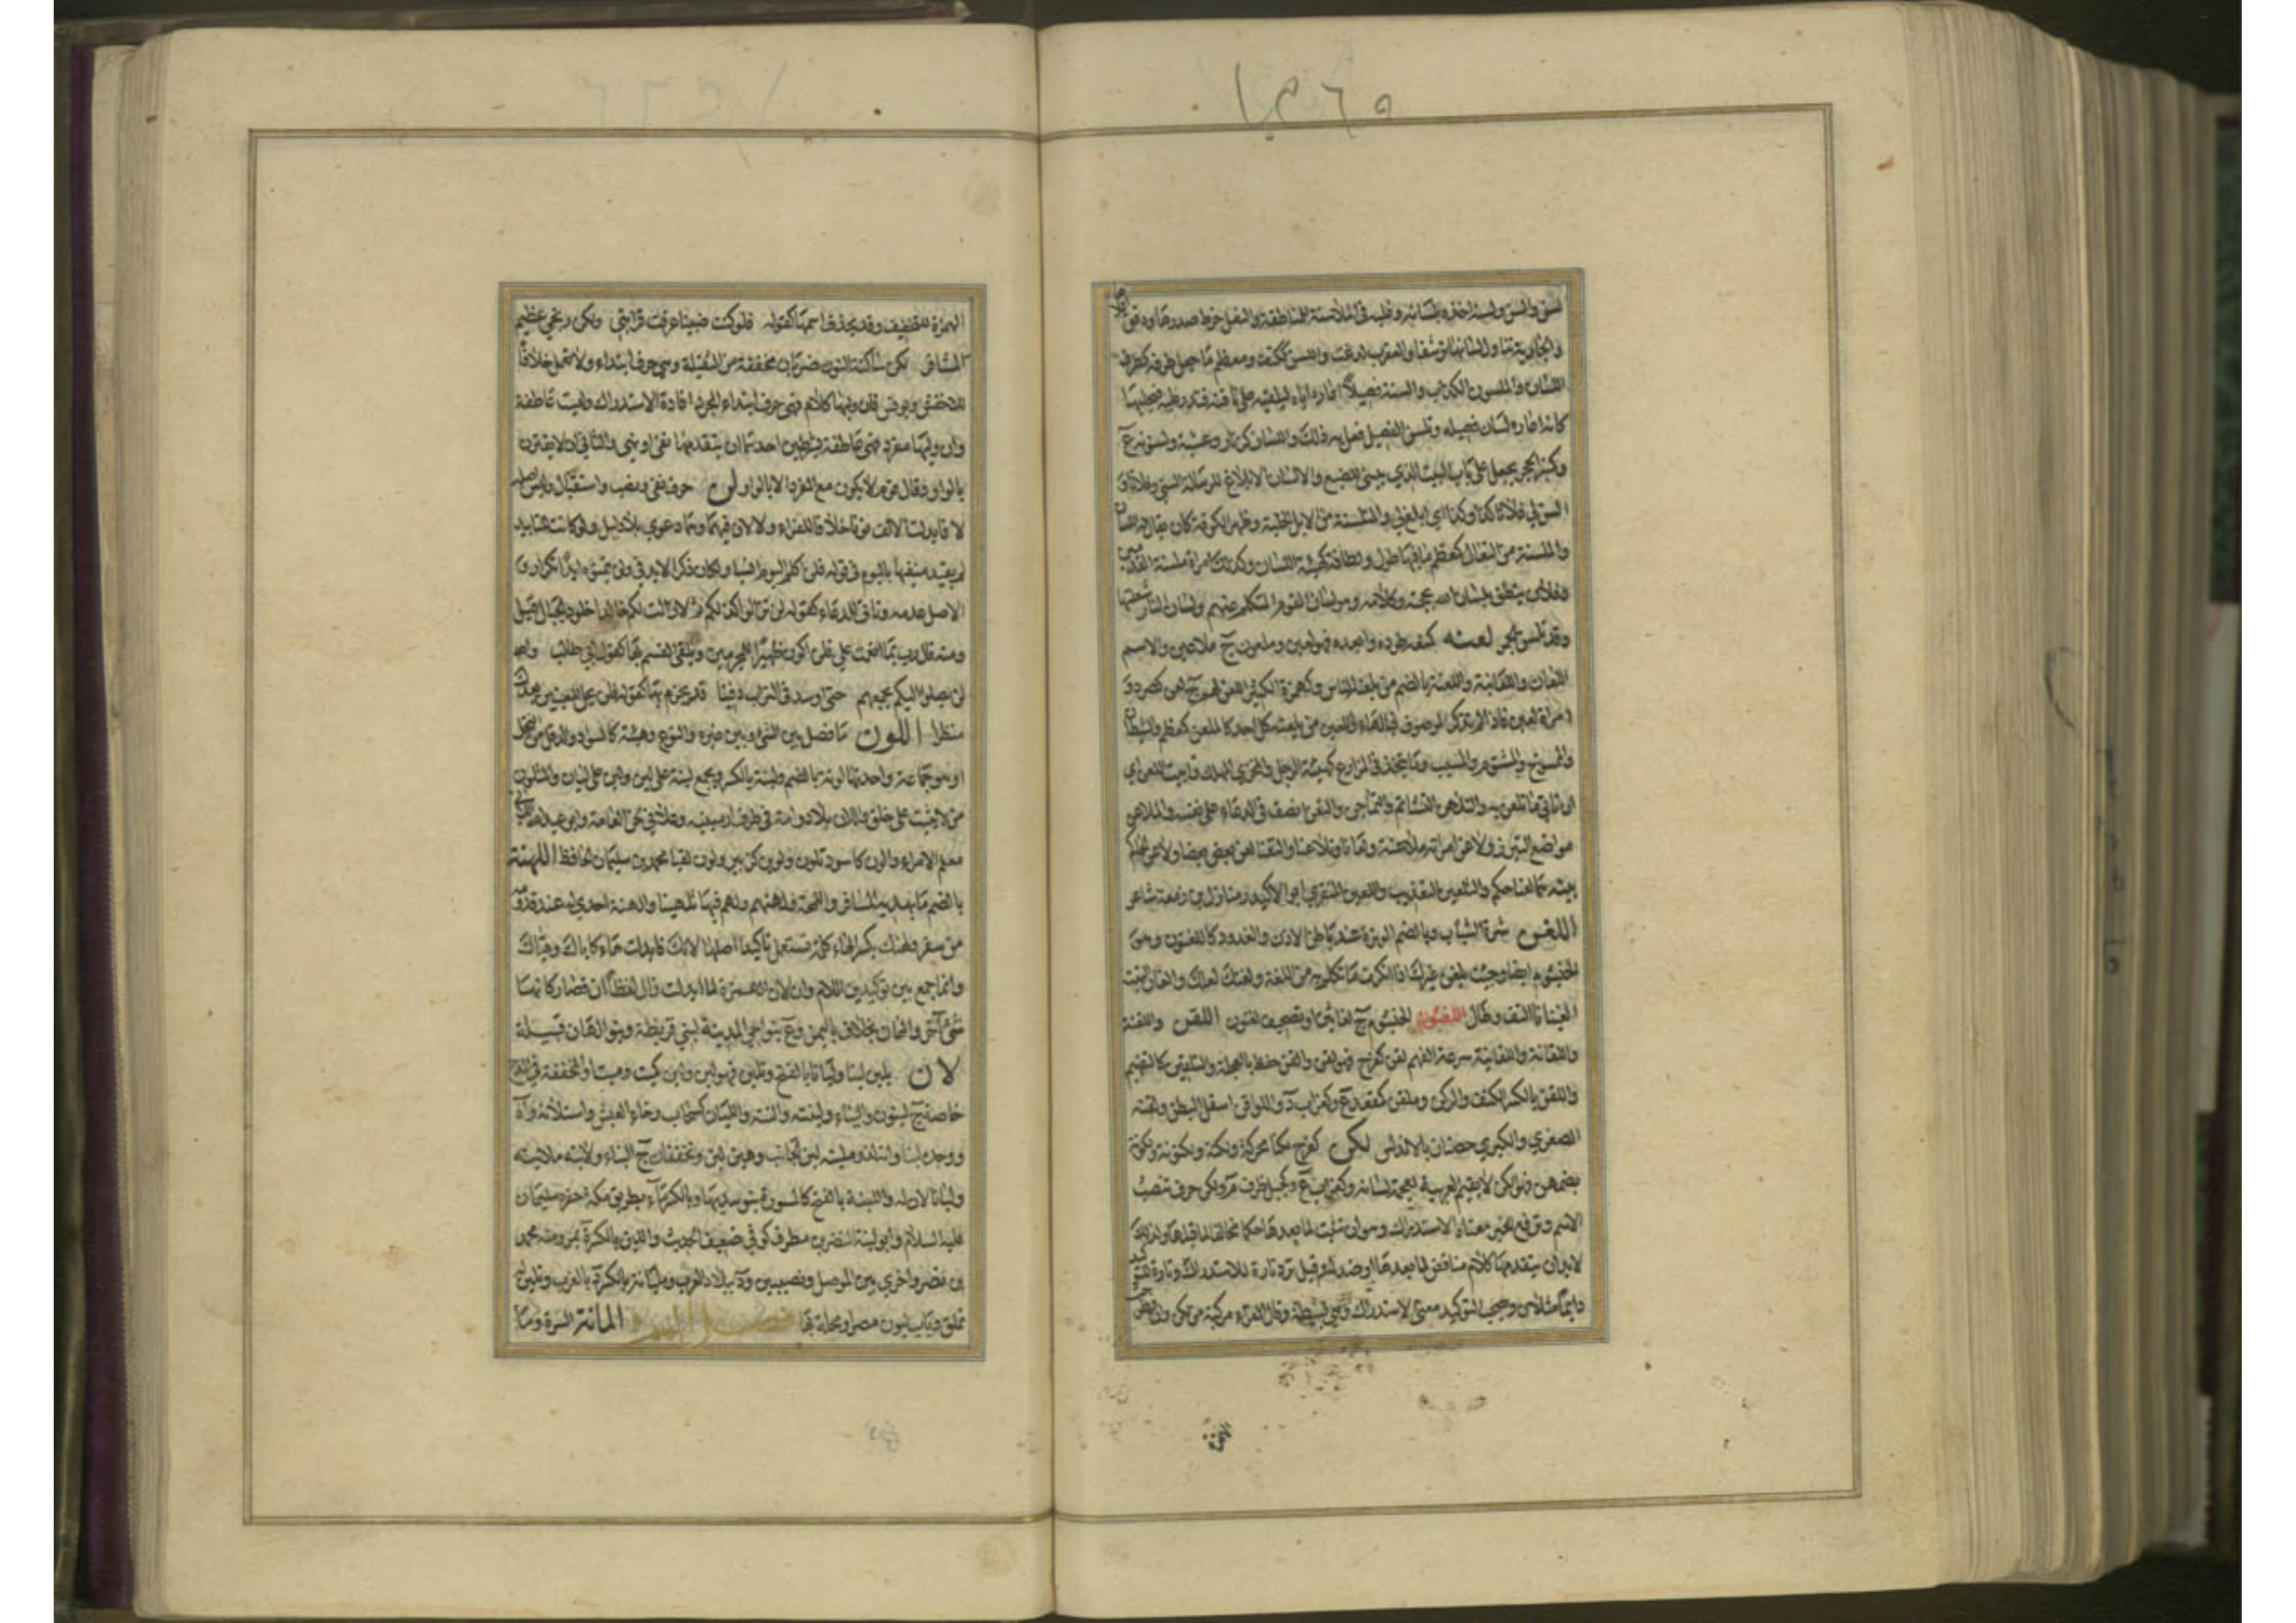 لسن والسن ولسنه اخذه بلسانه وغلبه في الملاسنة للمناطقة والنعل خرط صدرها ودقق
والجارية تناول لسانها ترشفا والعقرب لدغت واللسن ككتف ومعظم ما جعل طرفه كطرف
اللسان والملسون الكذاب والسنه فصيلا اعاره اياه ليلقيه على ناقته فتدر عليه فيحلبها
كانه اعاره لسان فصيله وتلسن الفصيل فعل به ذلك واللسان كزنار وعشبة ولسونة ع
وكمنبر الحجر يجعل على باب البيت الذي يبنى للضبع والالسان الابلاغ للرسالة السني فلانا و
السن لي فلانا كذا وكذا اي ابلغ لي والمتلسنة من الابل الخلية وظهر الكوفة كان يقال له اللسان
والملسنة من النعال كمعظم ما فيها طول ولطافة كهيئة اللسان وكذلك امراة ملسنة القدمين
وفلان ينطق بلسان الله بحجته وكلامه وهو لسان القوم المتكلم عنهم ولسان النار شعلتها
وقد تلسن الجمر لعنه كمنعه طرده وابعده فهو لعين وملعون ج ملاعين والاسم
اللعان واللعانية واللعنة بالضم من يلعنه الناس وكهمزة الكثير اللعن لهم ج لعن كصرد و
امراة لعين فاذا لم تذكر الموصوف فبالهاء واللعين من يلعنه كل احد كالملعن كمعظم والشيطان
والممسوخ والمشؤم والمسيب وما يتخذ في المزارع كهيئة الرجل والمخزي المهلك وابيت اللعن اي
ان تاتي ما تلعن به والتلاعن التشاتم والتماجن والتعن انصف في الدعاء على نفسه والملاعن
مواضع التبرز ولاعن امراته ملاعنة ولعانا وتلاعنا والتعنا لعن بعض بعضا ولاعن الحاكم
بينهما لعانا حكم والتلعين التعذيب واللعين المنقري ابو الاكيدر منازل بن زمعة شاعر
اللغن شرة الشباب وبالضم الوترة عند باطن الاذن والغدود كاللغنون وهي
الخيشوم ايضا وجئت بلغن غيرك اذا انكرت ما تكلم به من اللغة ولغنك لعلك والغان النبت
الغينانا التف وطال اللغنون الخيشوم ج لغانين او تصحيف لغنون اللقن واللقنة
واللقانة واللقانية سرعة الفهم لقن كفرح فهو لقن والقن حفظ بالعجلة والتلقين كالتفهيم
واللقن بالكسر الكنف والركن وملقن كمقعد ع وكغراب د واللواقن اسفل البطن ولقنه
الصغري والكبري حصنان بالاندلس لكن كفرح لكنا محركة ولكنة ولكونة ولكنونة
بضمهن فهو الكن لا يقيم العربية لعجمة لسانه وكغراب ع وكجبل ظرف م ولكن حرف تنصب
الاسم وترفع الخبر معناه الاستدراك وهو ان تثبت لما بعدها حكما مخالفا لما قبلها ولذلك
لابد ان يتقدمها كلام مناقض لما بعدها او ضد له وقيل ترد تارة للاستدراك وتارة للتوكيد
دايما مثل ان ويصحب التوكيد معنى الاستدراك وهي بسيطة وقال الفراء مركبة من لكن وان فطرحت
الهمزة
الهمزة للتخفيف وقد يحذف اسمها كقوله فلو كنت ضبيا عرفت قرابتي ولكن زنجي عظيم
المشافر لكن ساكنة النون ضربان مخففة من الثقيلة وهي حرف ابتداء ولا تعمل خلافا
للاخفش ويونس فان وليها كلام فهي حرف ابتداء لمجرد افادة الاستدراك وليست عاطفة
وان وليها مفرد فهي عاطفة بشرطين احدهما ان يتقدمها نفي او نهي والثاني ان لا يقترن
بالواو وقال قوم لا يكون مع المفرد الا بالواو لن حرف نفي ونصب واستقبال وليس اصله
لا فابدلت الالف نونا خلافا للفراء ولا لا ان فيهما وهما دعوي بلا دليل ولو كانت للتابيد
لم يقيد منفيها باليوم في قوله فلن اكلم اليوم انسيا ولكان ذكر الابد في ولن يتمنوه ابدا تكرارا و
الاصل عدمه وتاتي للدعاء كقوله لن تزالوا كذلكم ثم لا زلت لكم خالدا خلود الجبال قيل
ومنه قال رب بما انعمت علي فلن اكون ظهيرا للمجرمين ويتلقى القسم بها كقول ابي طالب والله
لن يصلوا اليك بجمعهم حتى اوسد في التراب دفينا قد يجزم بها كقوله فلن يحل للعينين بعدك
منظر اللون ما فصل بين الشئ وبين غيره والنوع وهيئة كالسواد والدقل من النخل
او هو جماعة واحدتها لونة بالضم ولينة بالكسر ويجمع لينة على لين ولين على ليان والمتلون
من لا يثبت على خلق واللان بلاد وامة في طرف ارمينية
معلم الامراء والون كاسود تلون ولوين كزبير ولون لقبا محمد بن سليمان الحافظ اللهنة
بالضم ما يهديه المسافر واللمجة ولهنهم ولهم فيهما تلهينا والهنه اهدي له عند قدومه
من سفر ولهنك بكسر الهاء كلمة تستعمل تاكيدا اصلها لانك فابدلت هاء كاياك وهياك
وانما جمع بين توكيدين اللام وان لان الهمزة لما ابدلت زال لفظ ان فصار كانها
شئ آخر والهان مخلاف باليمن وع بنواحي المدينة لبني قريظة وبنو الهان قبيلة
لان يلين لينا وليانا بالفتح وتلين فهو لين ولين كميت وميت او المخففة في المدح
خاصة ج لينون والينآء ولينه والنه والليان كسحاب رخاء العيش واستلانه رآه
ووجده لينا والتلذ وملينه لين الجانب وهين لين وتخففان ج الينآء ولاينه ملاينة
وليانا لان له واللينة بالفتح كالمسورة يتوسد بها وبالكسر ماء بطريق مكة حفره سليمان
عليه السلام وابو لينة النضر بن مطرف كوفي ضعيف الحديث واللين بالكسر ة بمرو منه محمد
بن نصر واخري بين الموصل ونصيبين ود ببلاد الغرب وليانة بالكسر ة بالغرب وتلين
تملق وباب ليون مصر او محلة بها فصل الميم المانة السرة وما